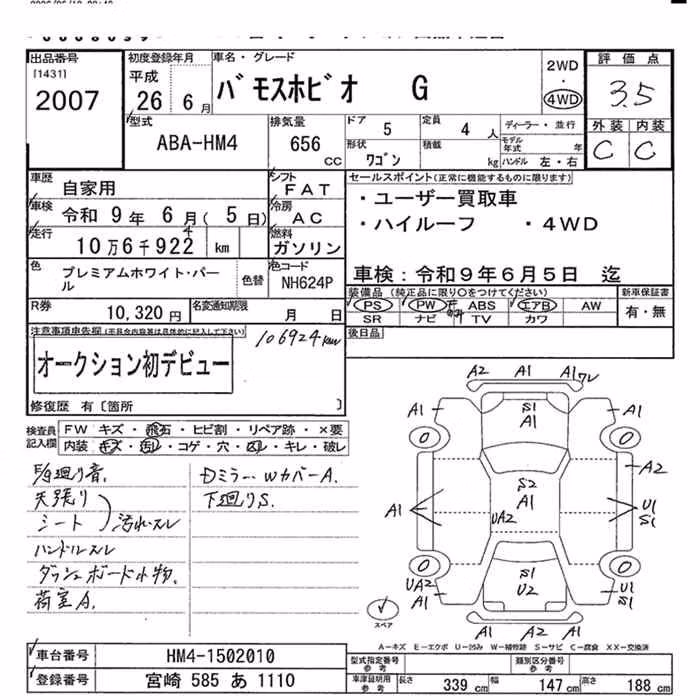 出品番号
[1431]
2007
初度登録年月
平成
26 6月
車名・グレード
バモスホビオ G
2WD
・
4WD
評価点
3.5
外装 内装
C C
型式
ABA-HM4
排気量
656
CC
ドア 5
定員 4 人
ディーラー・並行
形状
ワゴン
積載
kg
モデル年式
年
ハンドル 左・右
車歴
自家用
シフト
FAT
セールスポイント(正常に機能するものに限ります)
・ユーザー買取車
・ハイルーフ ・4WD
車検：令和9年6月5日 迄
車検
令和 9年 6月( 5日)
冷房
AC
走行
10万6千922 km
4
燃料
ガソリン
色
プレミアムホワイト・パール
色替
色コード
NH624P
R券
10,320円
名変通知期限
月 日
装備品(純正品に限り○をつけてください)
PS PW ABS エアB AW
SR ナビ TV カワ
新車保証書
有・無
注意事項申告欄(不具合内容等は具体的に記入して下さい)
106924km
オークション初デビュー
修復歴 有〔箇所 〕
後日品
検査員記入欄
FW キズ・飛石・ヒビ割・リペア跡・×要
内装・キズ・汚レ・コゲ・穴・凹・キレ・破レ
F/g廻り音.
天張り
シート
汚れ・スレ
ハンドルスレ
ダッシュボード小物.
荷室A.
Dミラー、WカバーA.
下廻りS.
A2 A1 A1 ワレ
A1 S1 A1 A1
0 0
A2
S2
A1
A1 UA2 U1
S1
0 0
UA2 S1 S1
A1 U2 U1
A1 A2 A1
スペア
A-キズ E-エクボ U-凹み W-補修跡 S-サビ C-腐食 XX-交換済
車台番号
HM4-1502010
登録番号
宮崎 585 あ 1110
型式指定番号
参考
類別区分番号
参考
車庫証明用
参考
長さ 339 cm
幅 147 cm
高さ 188 cm